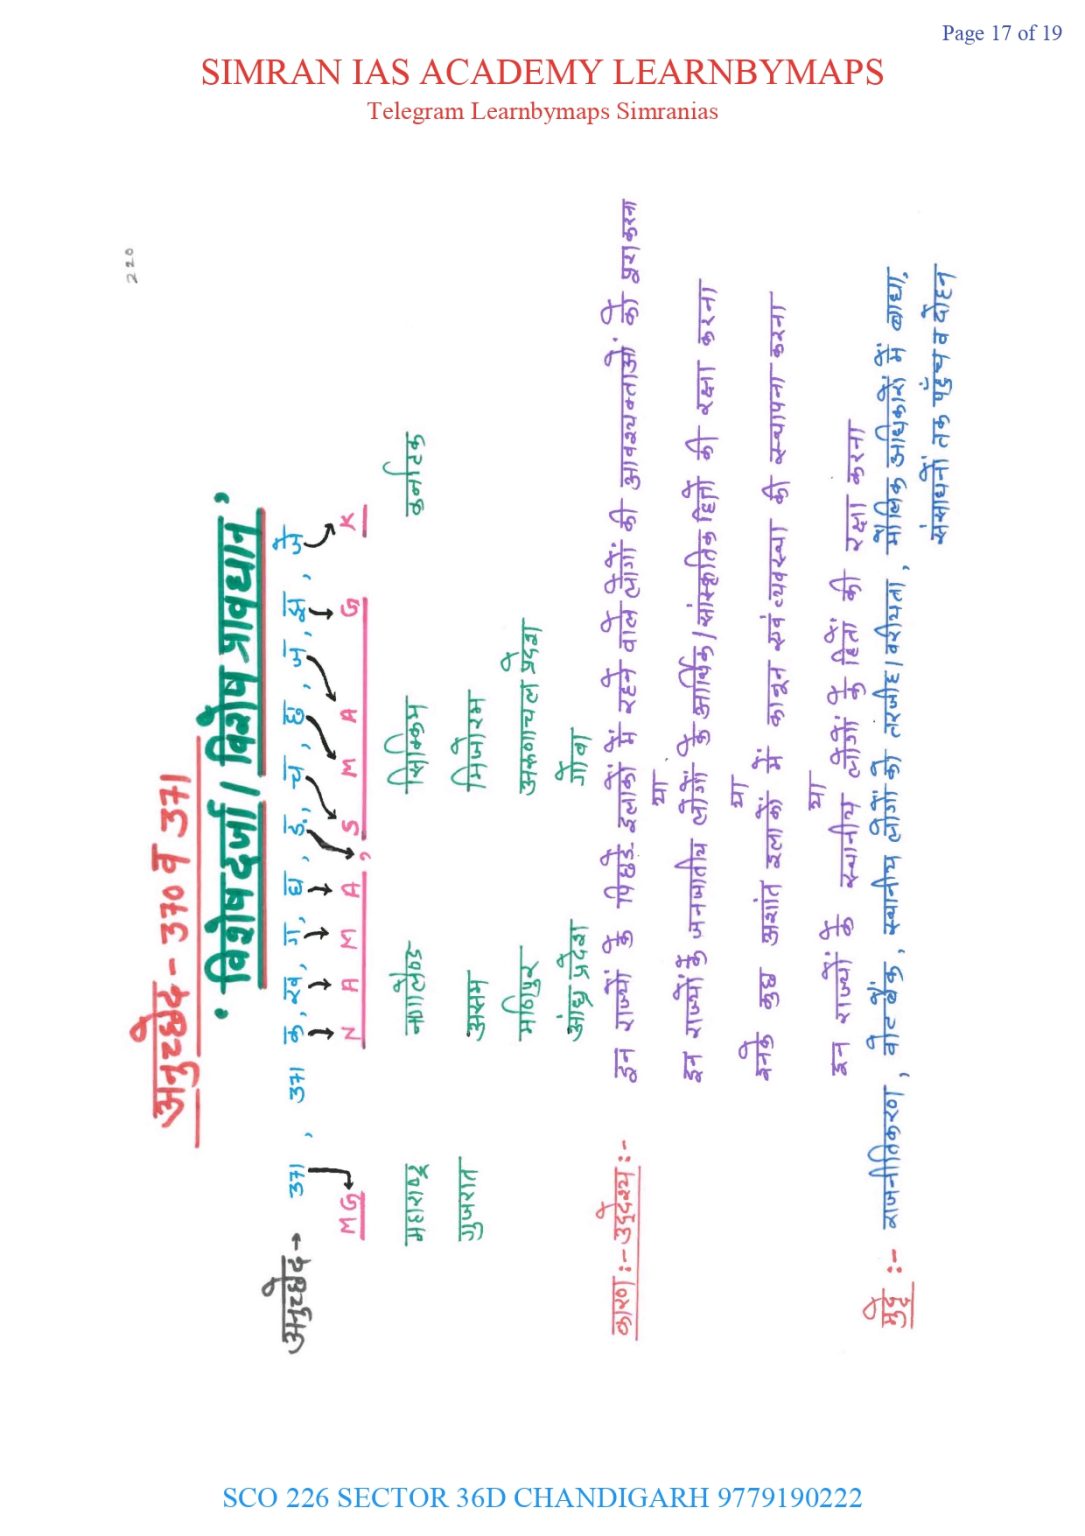 Page 17 of 19
SIMRAN IAS ACADEMY LEARNBYMAPS
Telegram Learnbymaps Simranias
220
अनुच्छेद - 370 व 371
' विशेष दर्जा / विशेष प्रावधान '
अनुच्छेद → 371 , 371 क, ख, ग, घ, ड., च, छ, ज, झ, ञ
MG NAMA, SMAG K
महाराष्ट्र नागालैण्ड सिक्किम कर्नाटक
गुजरात असम मिजोरम
मणिपुर अरुणाचल प्रदेश
आंध्र प्रदेश गोवा
कारण :- उद्देश्य :- इन राज्यों के पिछड़े इलाकों में रहने वाले लोगों की आवश्यक्ताओं को पूरा करना
या
इन राज्यों के जनजातीय लोगों के आर्थिक / सांस्कृतिक हितों की रक्षा करना
या
इनके कुछ अशांत इलाकों में कानून एवं व्यवस्था की स्थापना करना
या
इन राज्यों के स्थानीय लोगों के हितों की रक्षा करना
मुद्दे :- राजनीतिकरण , वोट बैंक , स्थानीय लोगों को तरजीह / वरीयता , मौलिक अधिकारों में बाधा,
संसाधनों तक पहुँच व दोहन
SCO 226 SECTOR 36D CHANDIGARH 9779190222